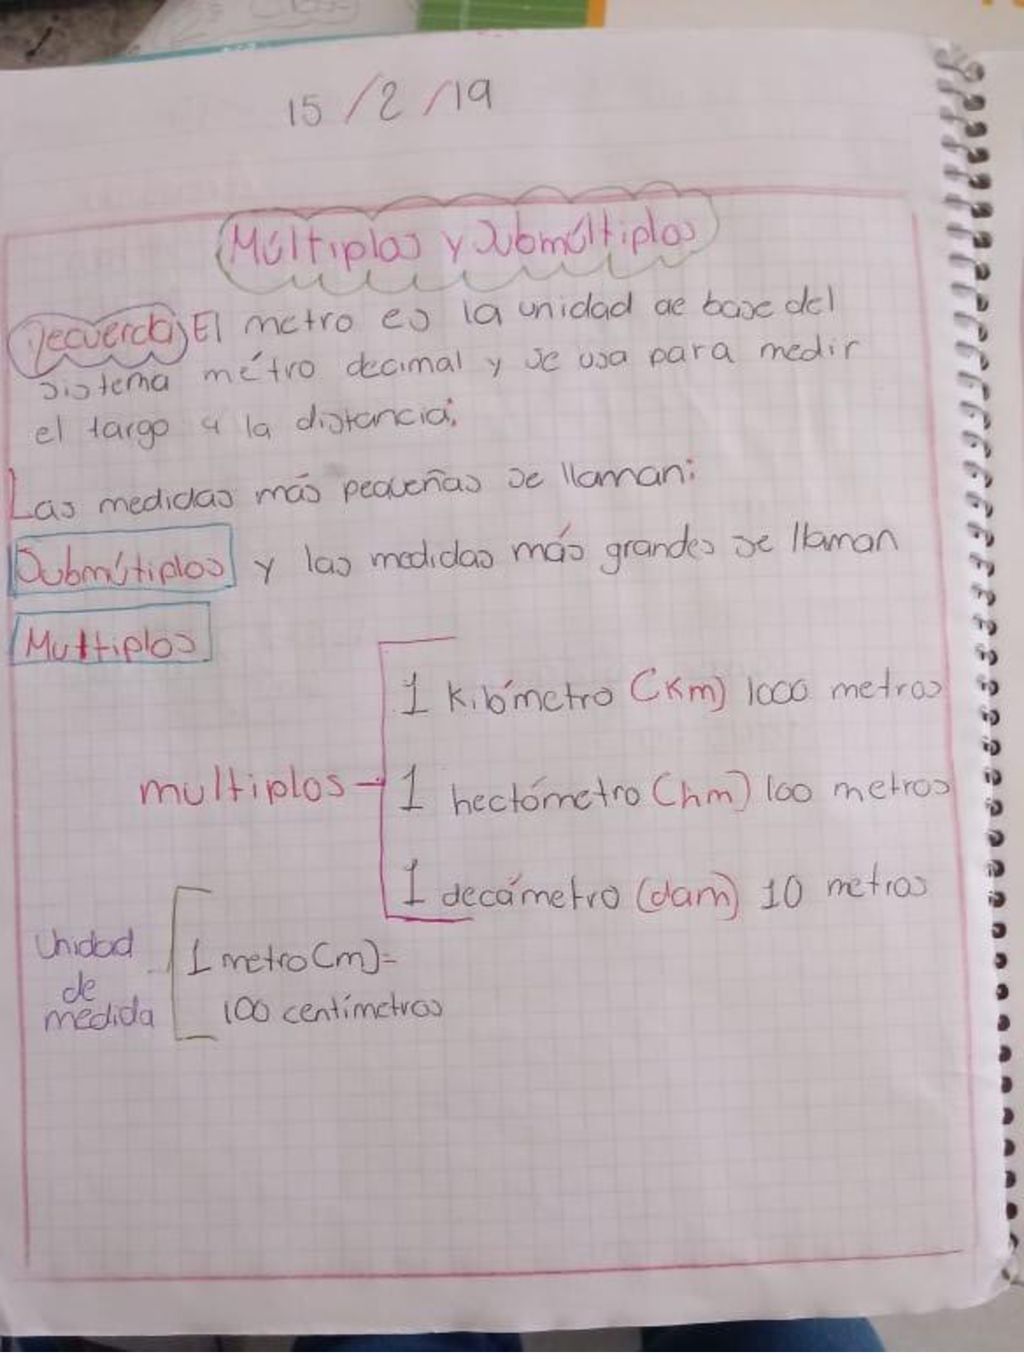 15/2/19
Múltiplos y Submúltiplos
recuerda El metro es la unidad de base del
sistema métro decimal y se usa para medir
el largo a la distancia;
Las medidas más pequeñas se llaman:
Submútiplos y las medidas más grandes se llaman
Multiplos
1 Kilómetro (Km) 1000 metros
multiplos 1 hectómetro (hm) 100 metros
1 decámetro (dam) 10 metros
Unidad
de
medida
1 metro (m)=
100 centímetros